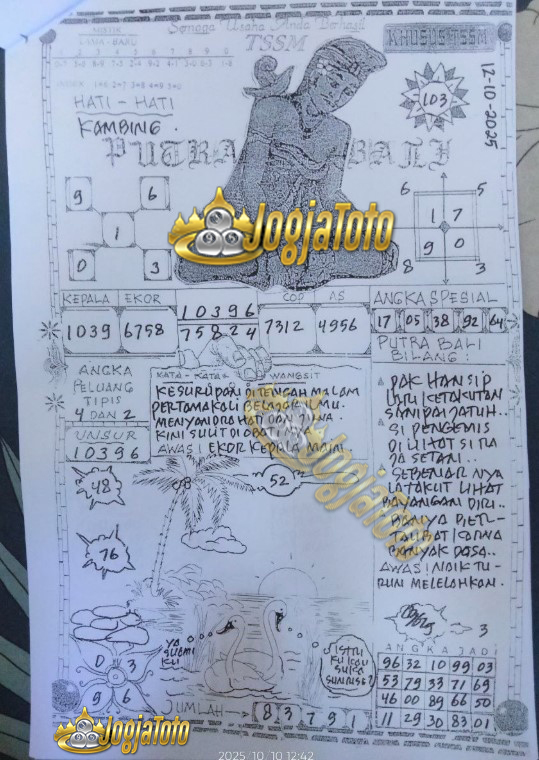 Semoga Usaha Anda Berhasil
TSSM
KHUSUS TSSM
LAMA - BARU
12-10-2025
103
HATI - HATI
KAMBING.
PUTRA BALI
9 6
1
0 3
6 5
1 7
9 0
8 3
JogjaToto
KEPALA EKOR
1039 6758
10396
75824
COP AS
7312 4956
ANGKA SPESIAL
17 05 38 92 64
PUTRA BALI
BILANG :
ANGKA
PELUANG
TIPIS
4 DAN 2
UNSUR
10396
KATA - KATA WANGSIT
KESURUPAN DI TENGAH MALAM
PERTAMA KALI BELAJAR ILMU.
KINI SULIT DI
AWAS! EKOR KEPALA MAIN
PAK HANSIP
LARI KETAKUTAN
SAMPAI JATUH..
SI PENGEMIS
DI LIHAT SI RA
JA SETAN..
SEBENAR NYA
IA TAKUT LIHAT
BAYANGAN DIRI..
BANYAK DOSA..
AWAS! NAIK TU-
RUN MELELAHKAN.
48
52
76
JogjaToto
3
YA
SUAMI
KU
ISTRI
KU KAU
SUKA
SUNRISE?
0 3
9 6
JUMLAH → 8 3 7 9 1
ANGKA JADI
96 32 10 99 03
53 79 33 71 69
46 00 89 66 50
11 29 30 83 01
JogjaToto
2025_10_10 12:42